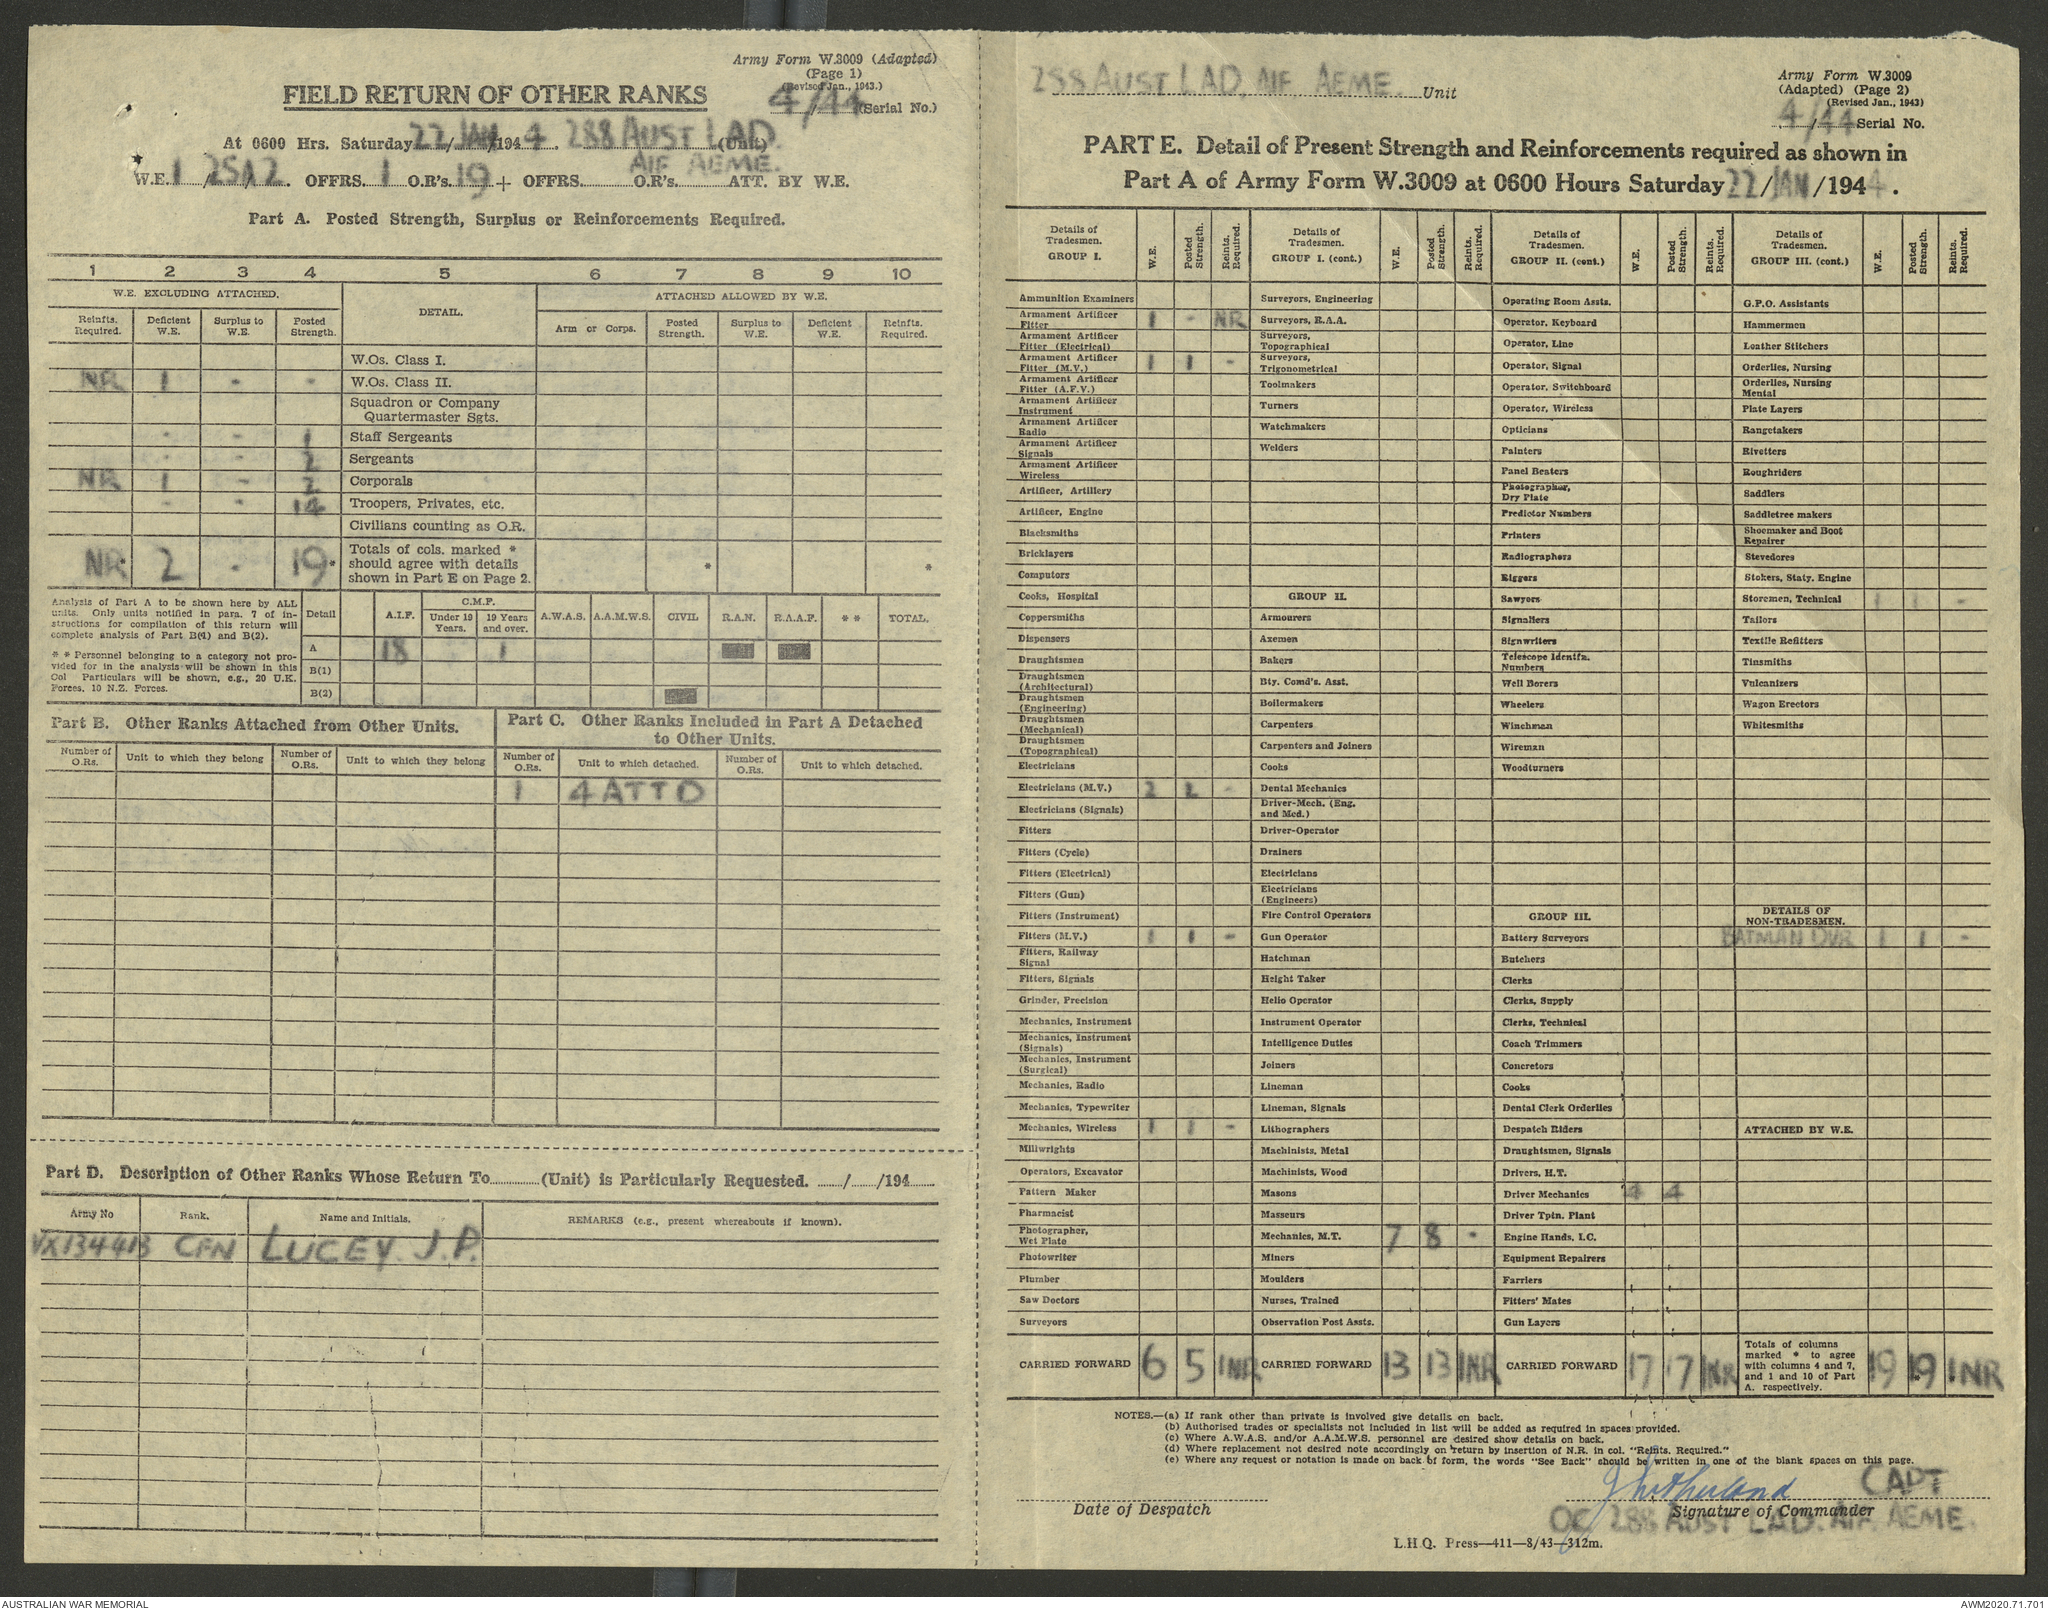 Army Form W.3009 (Adapted)
(Page 1)
(Revised Jan., 1943.)
FIELD RETURN OF OTHER RANKS
4/44 (Serial No.)
At 0600 Hrs. Saturday 22/JAN/1944. 288 AUST LAD. (Unit)
AIF AEME.
W.E. 1/25A/2. OFFRS. 1 O.R's. 19 + OFFRS. O.R's. ATT. BY W.E.
Part A. Posted Strength, Surplus or Reinforcements Required.
1 2 3 4 5 6 7 8 9 10
W.E. EXCLUDING ATTACHED. DETAIL. ATTACHED ALLOWED BY W.E.
Reinfts. Required. Deficient W.E. Surplus to W.E. Posted Strength. Arm or Corps. Posted Strength. Surplus to W.E. Deficient W.E. Reinfts. Required.
W.Os. Class I.
NR 1 - - W.Os. Class II.
Squadron or Company
Quartermaster Sgts.
- - 1 Staff Sergeants
- - 2 Sergeants
NR 1 - 2 Corporals
- - 14 Troopers, Privates, etc.
Civilians counting as O.R.
NR* 2 - 19* Totals of cols. marked *
should agree with details * *
shown in Part E on Page 2.
Analysis of Part A to be shown here by ALL
units. Only units notified in para. 7 of in-
structions for compilation of this return will
complete analysis of Part B(1) and B(2).
* * Personnel belonging to a category not pro-
vided for in the analysis will be shown in this
Col Particulars will be shown, e.g., 20 U.K.
Forces, 10 N.Z. Forces.
Detail A.I.F. C.M.F. Under 19 Years. 19 Years and over. A.W.A.S. A.A.M.W.S. CIVIL R.A.N. R.A.A.F. * * TOTAL.
A 18 1
B(1)
B(2)
Part B. Other Ranks Attached from Other Units.
Part C. Other Ranks Included in Part A Detached
to Other Units.
Number of O.Rs. Unit to which they belong Number of O.Rs. Unit to which they belong Number of O.Rs. Unit to which detached. Number of O.Rs. Unit to which detached.
1 4 ATTD
Part D. Description of Other Ranks Whose Return To (Unit) is Particularly Requested. / /194
Army No Rank. Name and Initials. REMARKS (e.g., present whereabouts if known).
VX134413 CFN LUCEY. J.P.
288 AUST LAD, AIF AEME. Unit
Army Form W.3009
(Adapted) (Page 2)
(Revised Jan., 1943)
4/44 Serial No.
PART E. Detail of Present Strength and Reinforcements required as shown in
Part A of Army Form W.3009 at 0600 Hours Saturday 22/JAN/1944.
Details of Tradesmen. GROUP I. W.E. Posted Strength. Reints. Required.
Ammunition Examiners
Armament Artificer Fitter 1 - NR
Armament Artificer Fitter (Electrical)
Armament Artificer Fitter (M.V.) 1 1 -
Armament Artificer Fitter (A.F.V.)
Armament Artificer Instrument
Armament Artificer Radio
Armament Artificer Signals
Armament Artificer Wireless
Artificer, Artillery
Artificer, Engine
Blacksmiths
Bricklayers
Computors
Cooks, Hospital
Coppersmiths
Dispensers
Draughtsmen
Draughtsmen (Architectural)
Draughtsmen (Engineering)
Draughtsmen (Mechanical)
Draughtsmen (Topographical)
Electricians
Electricians (M.V.) 2 2 -
Electricians (Signals)
Fitters
Fitters (Cycle)
Fitters (Electrical)
Fitters (Gun)
Fitters (Instrument)
Fitters (M.V.) 1 1 -
Fitters, Railway Signal
Fitters, Signals
Grinder, Precision
Mechanics, Instrument
Mechanics, Instrument (Signals)
Mechanics, Instrument (Surgical)
Mechanics, Radio
Mechanics, Typewriter
Mechanics, Wireless 1 1 -
Millwrights
Operators, Excavator
Pattern Maker
Pharmacist
Photographer, Wet Plate
Photowriter
Plumber
Saw Doctors
Surveyors
CARRIED FORWARD 6 5 1NR
Details of Tradesmen. GROUP I. (cont.) W.E. Posted Strength. Reints. Required.
Surveyors, Engineering
Surveyors, R.A.A.
Surveyors, Topographical
Surveyors, Trigonometrical
Toolmakers
Turners
Watchmakers
Welders
GROUP II.
Armourers
Axemen
Bakers
Bty. Comd's. Asst.
Boilermakers
Carpenters
Carpenters and Joiners
Cooks
Dental Mechanics
Driver-Mech. (Eng. and Med.)
Driver-Operator
Drainers
Electricians
Electricians (Engineers)
Fire Control Operators
Gun Operator
Hatchman
Height Taker
Helio Operator
Instrument Operator
Intelligence Duties
Joiners
Lineman
Lineman, Signals
Lithographers
Machinists, Metal
Machinists, Wood
Masons
Masseurs
Mechanics, M.T. 7 8 -
Miners
Moulders
Nurses, Trained
Observation Post Assts.
CARRIED FORWARD 13 13 1NR
Details of Tradesmen. GROUP II. (cont.) W.E. Posted Strength. Reints. Required.
Operating Room Assts.
Operator, Keyboard
Operator, Line
Operator, Signal
Operator, Switchboard
Operator, Wireless
Opticians
Painters
Panel Beaters
Photographer, Dry Plate
Predictor Numbers
Printers
Radiographers
Riggers
Sawyers
Signallers
Signwriters
Telescope Identfn. Numbers
Well Borers
Wheelers
Winchman
Wireman
Woodturners
GROUP III.
Battery Surveyors
Butchers
Clerks
Clerks, Supply
Clerks, Technical
Coach Trimmers
Concretors
Cooks
Dental Clerk Orderlies
Despatch Riders
Draughtsmen, Signals
Drivers, H.T.
Driver Mechanics 4 4
Driver Tptn. Plant
Engine Hands, I.C.
Equipment Repairers
Farriers
Fitters' Mates
Gun Layers
CARRIED FORWARD 17 17 1NR
Details of Tradesmen. GROUP III. (cont.) W.E. Posted Strength. Reints. Required.
G.P.O. Assistants
Hammermen
Leather Stitchers
Orderlies, Nursing
Orderlies, Nursing Mental
Plate Layers
Rangetakers
Rivetters
Roughriders
Saddlers
Saddletree makers
Shoemaker and Boot Repairer
Stevedores
Stokers, Staty. Engine
Storemen, Technical 1 1 -
Tailors
Textile Refitters
Tinsmiths
Vulcanizers
Wagon Erectors
Whitesmiths
DETAILS OF NON-TRADESMEN.
BATMAN DVR 1 1 -
ATTACHED BY W.E.
Totals of columns marked * to agree with columns 4 and 7, and 1 and 10 of Part A. respectively. 19 19 1NR
NOTES.—(a) If rank other than private is involved give details on back.
(b) Authorised trades or specialists not included in list will be added as required in spaces provided.
(c) Where A.W.A.S. and/or A.A.M.W.S. personnel are desired show details on back.
(d) Where replacement not desired note accordingly on return by insertion of N.R. in col. "Reints. Required."
(e) Where any request or notation is made on back of form, the words "See Back" should be written in one of the blank spaces on this page.
J Sutherland CAPT
Date of Despatch Signature of Commander
OC 288 AUST LAD. AIF AEME.
L.H.Q. Press—411—8/43—312m.
AUSTRALIAN WAR MEMORIAL
AWM2020.71.701